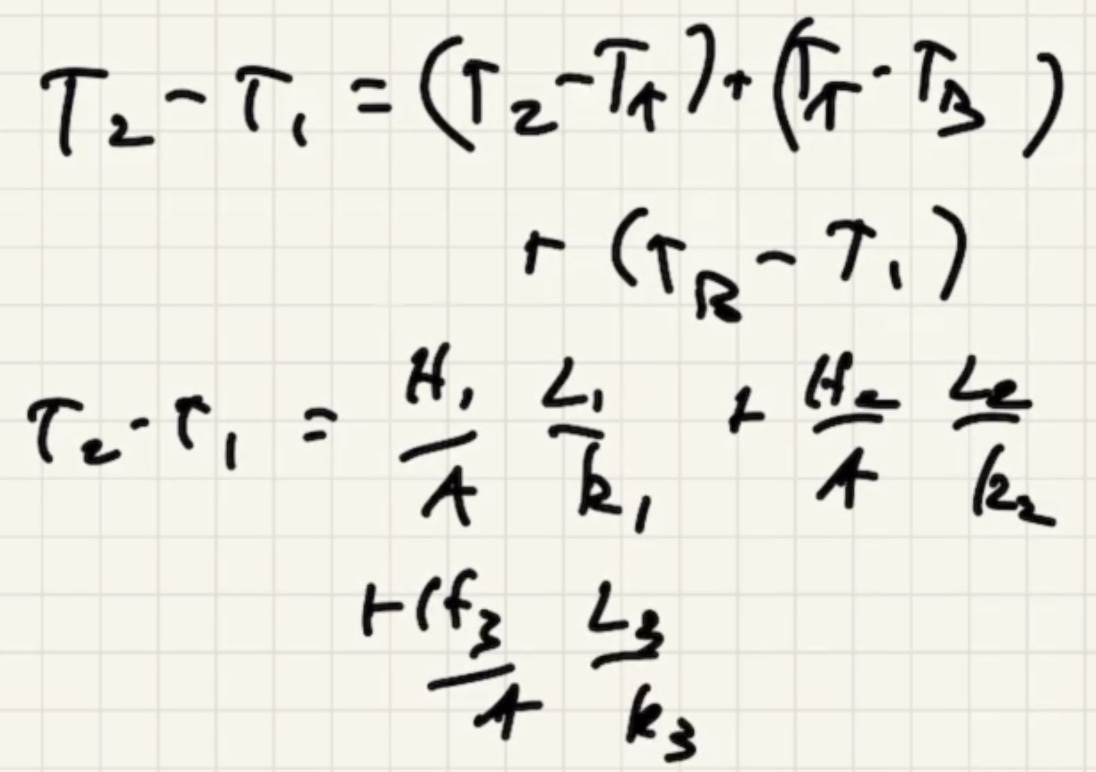 T₂ - T₁ = (T₂ - T_A) + (T_A - T_B)
+ (T_B - T₁)
T₂ - T₁ = H₁/A L₁/k₁ + H₂/A L₂/k₂
+ H₃/A L₃/k₃